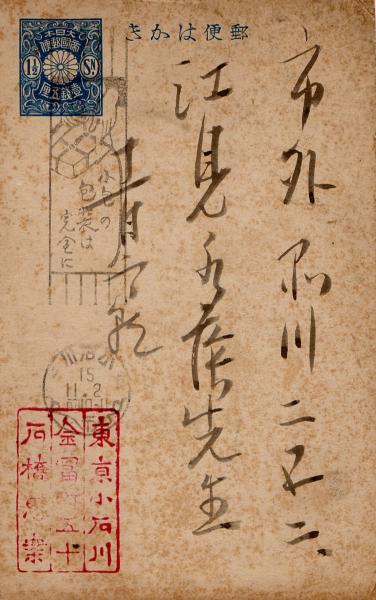 郵便はかき
大日本
帝國郵便
1½ Sn
壹銭五厘
市外品川二五二
江見水蔭先生
十一月二日
小包の
包装は
完全に
小石川
15
11.2
東京小石川
金冨町五十
石橋思案